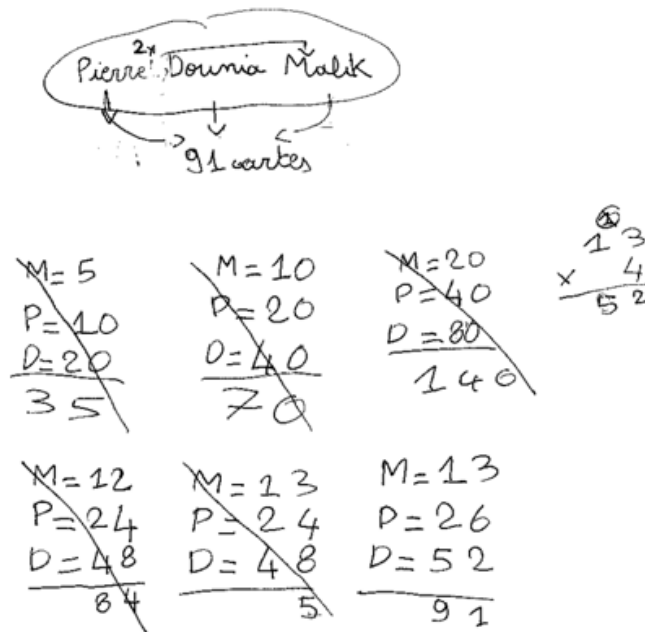 2x
Pierre Dounia Malik
91 cartes
M=5
P=10
D=20
35
M=10
P=20
D=40
70
M=20
P=40
D=80
140
13
x 4
52
M=12
P=24
D=48
84
M=13
P=24
D=48
5
M=13
P=26
D=52
91